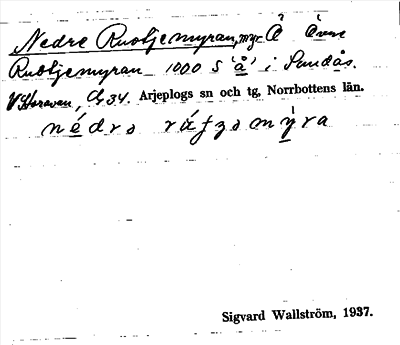 Nedre Ruobjemyran, myr Ö Övre
Ruobjemyran 1000 S 'å' i Sundås.
V Storavan, Ar 34. Arjeplogs sn och tg, Norrbottens län.
Sigvard Wallström, 1937.